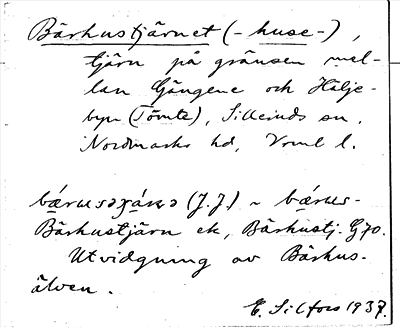 Bärhustjärnet (-huse-),
tjärn på gränsen mel-
lan Gängene och Hälje-
byn (Tömte), Silleruds sn,
Nordmarks hd, Vrml l.
(J.J.) ~
Bärhustjärn ek, Bärhustj. G70.
Utvidgning av Bärhus-
älven.
E. Silfors 1937.